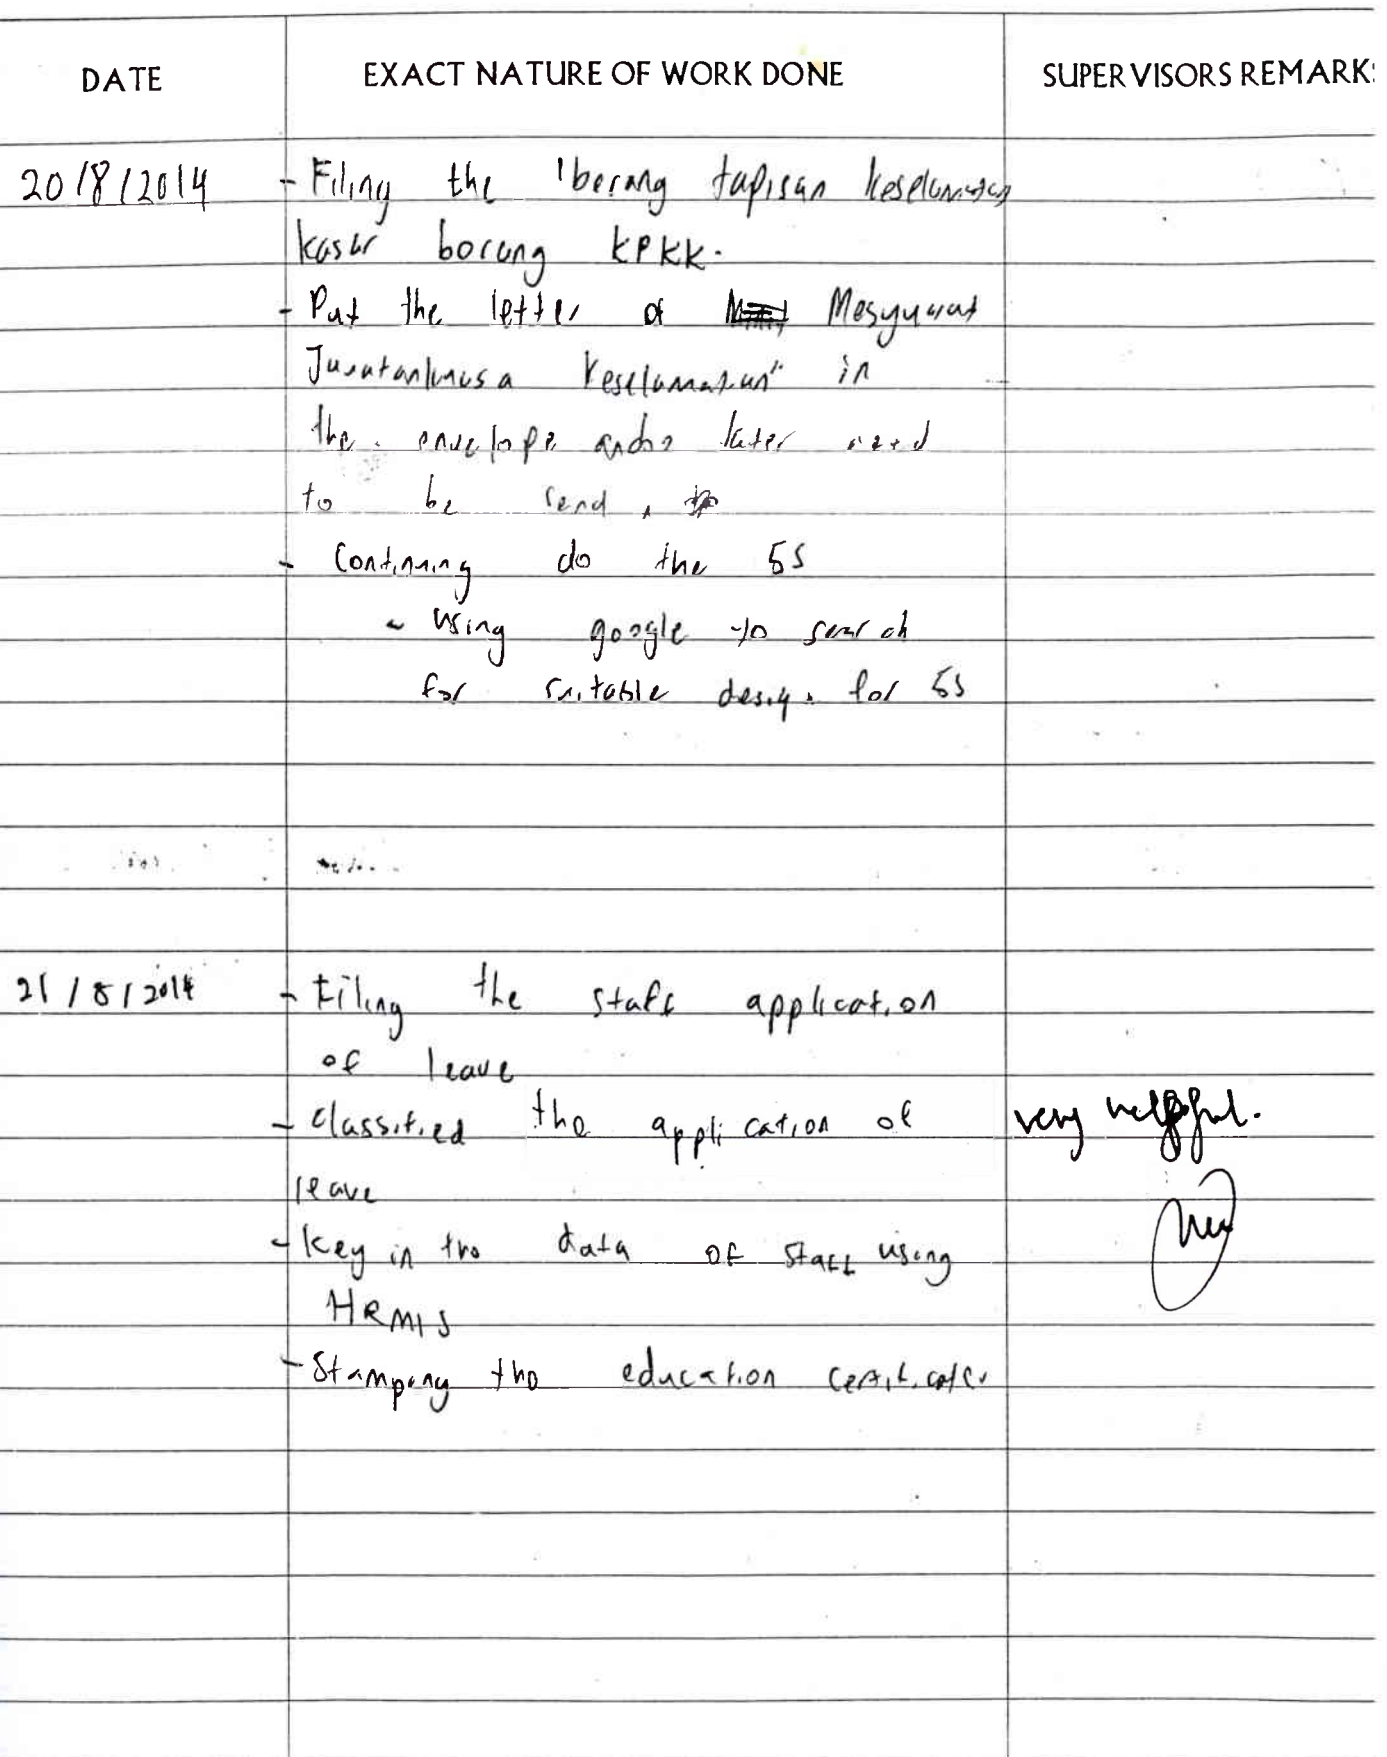 DATE EXACT NATURE OF WORK DONE SUPERVISORS REMARK
20/8/2014 - Filing the "borang tapisan keselamatan
kasar borang KPKK.
- Put the letter of Mesyuarat
Jawatankuasa Keselamatan" in
the envelope and later need
to be send.
- Continuing do the 5S
- using google to search
for suitable design for 5S
21/8/2014 - Filing the staff application
of leave
- Classified the application of very helpful.
leave
- Key in the data of staff using
HRMIS
- Stamping the education certificate.